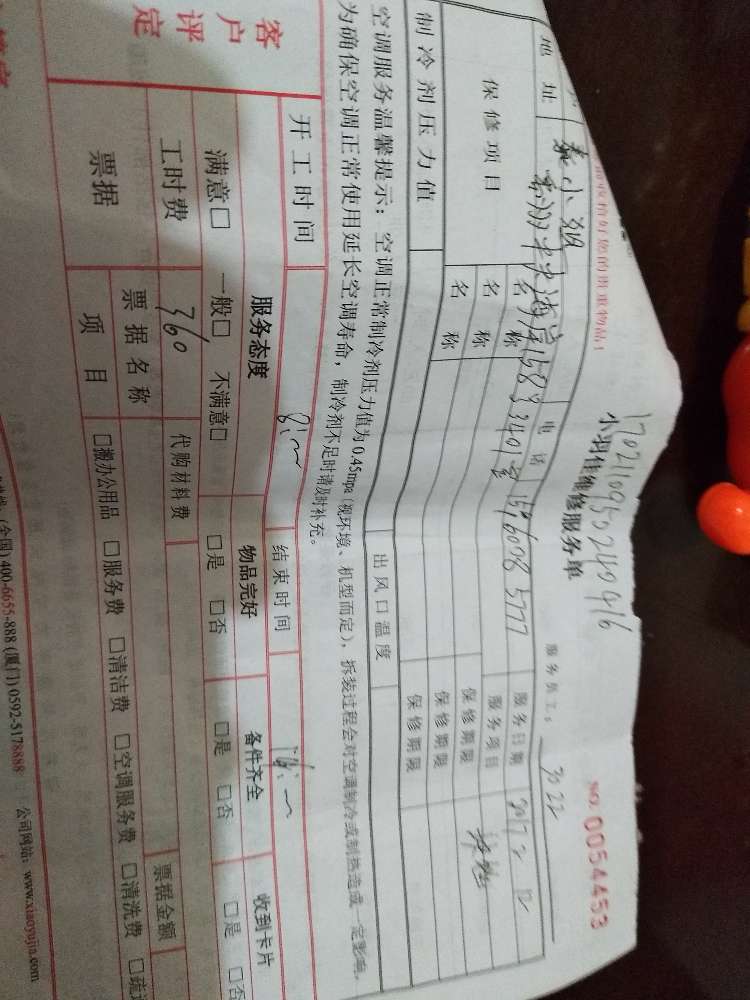 请收拾好您的贵重物品!
17021109150240416
小羽佳维修服务单
NO. 0054453
服务员工: 3022
小姐 电话 15960085777 服务日期 2017 2 12
地址 1583 3401室 服务项目
保修项目 名称 保修期限
名称 保修期限
名称 保修期限
制冷剂压力值 出风口温度
空调服务温馨提示: 空调正常制冷剂压力值为0.45mpa (视环境、机型而定), 拆装过程会对空调制冷或制热造成一定影响,
为确保空调正常使用延长空调寿命, 制冷剂不足时请及时补充。
开工时间 结束时间
客户评定 服务态度 物品完好 备件齐全 收到卡片
满意□ 一般□ 不满意□ □是 □否 □是 □否 □是 □否
工时费 360 代购材料费
票据 票据名称 票据金额
项目 □搬办公用品 □服务费 □清洁费 □空调服务费 □清洗费
(全国) 400-6655-888 (厦门) 0592-5178888 公司网站: www.xiaoyujia.com